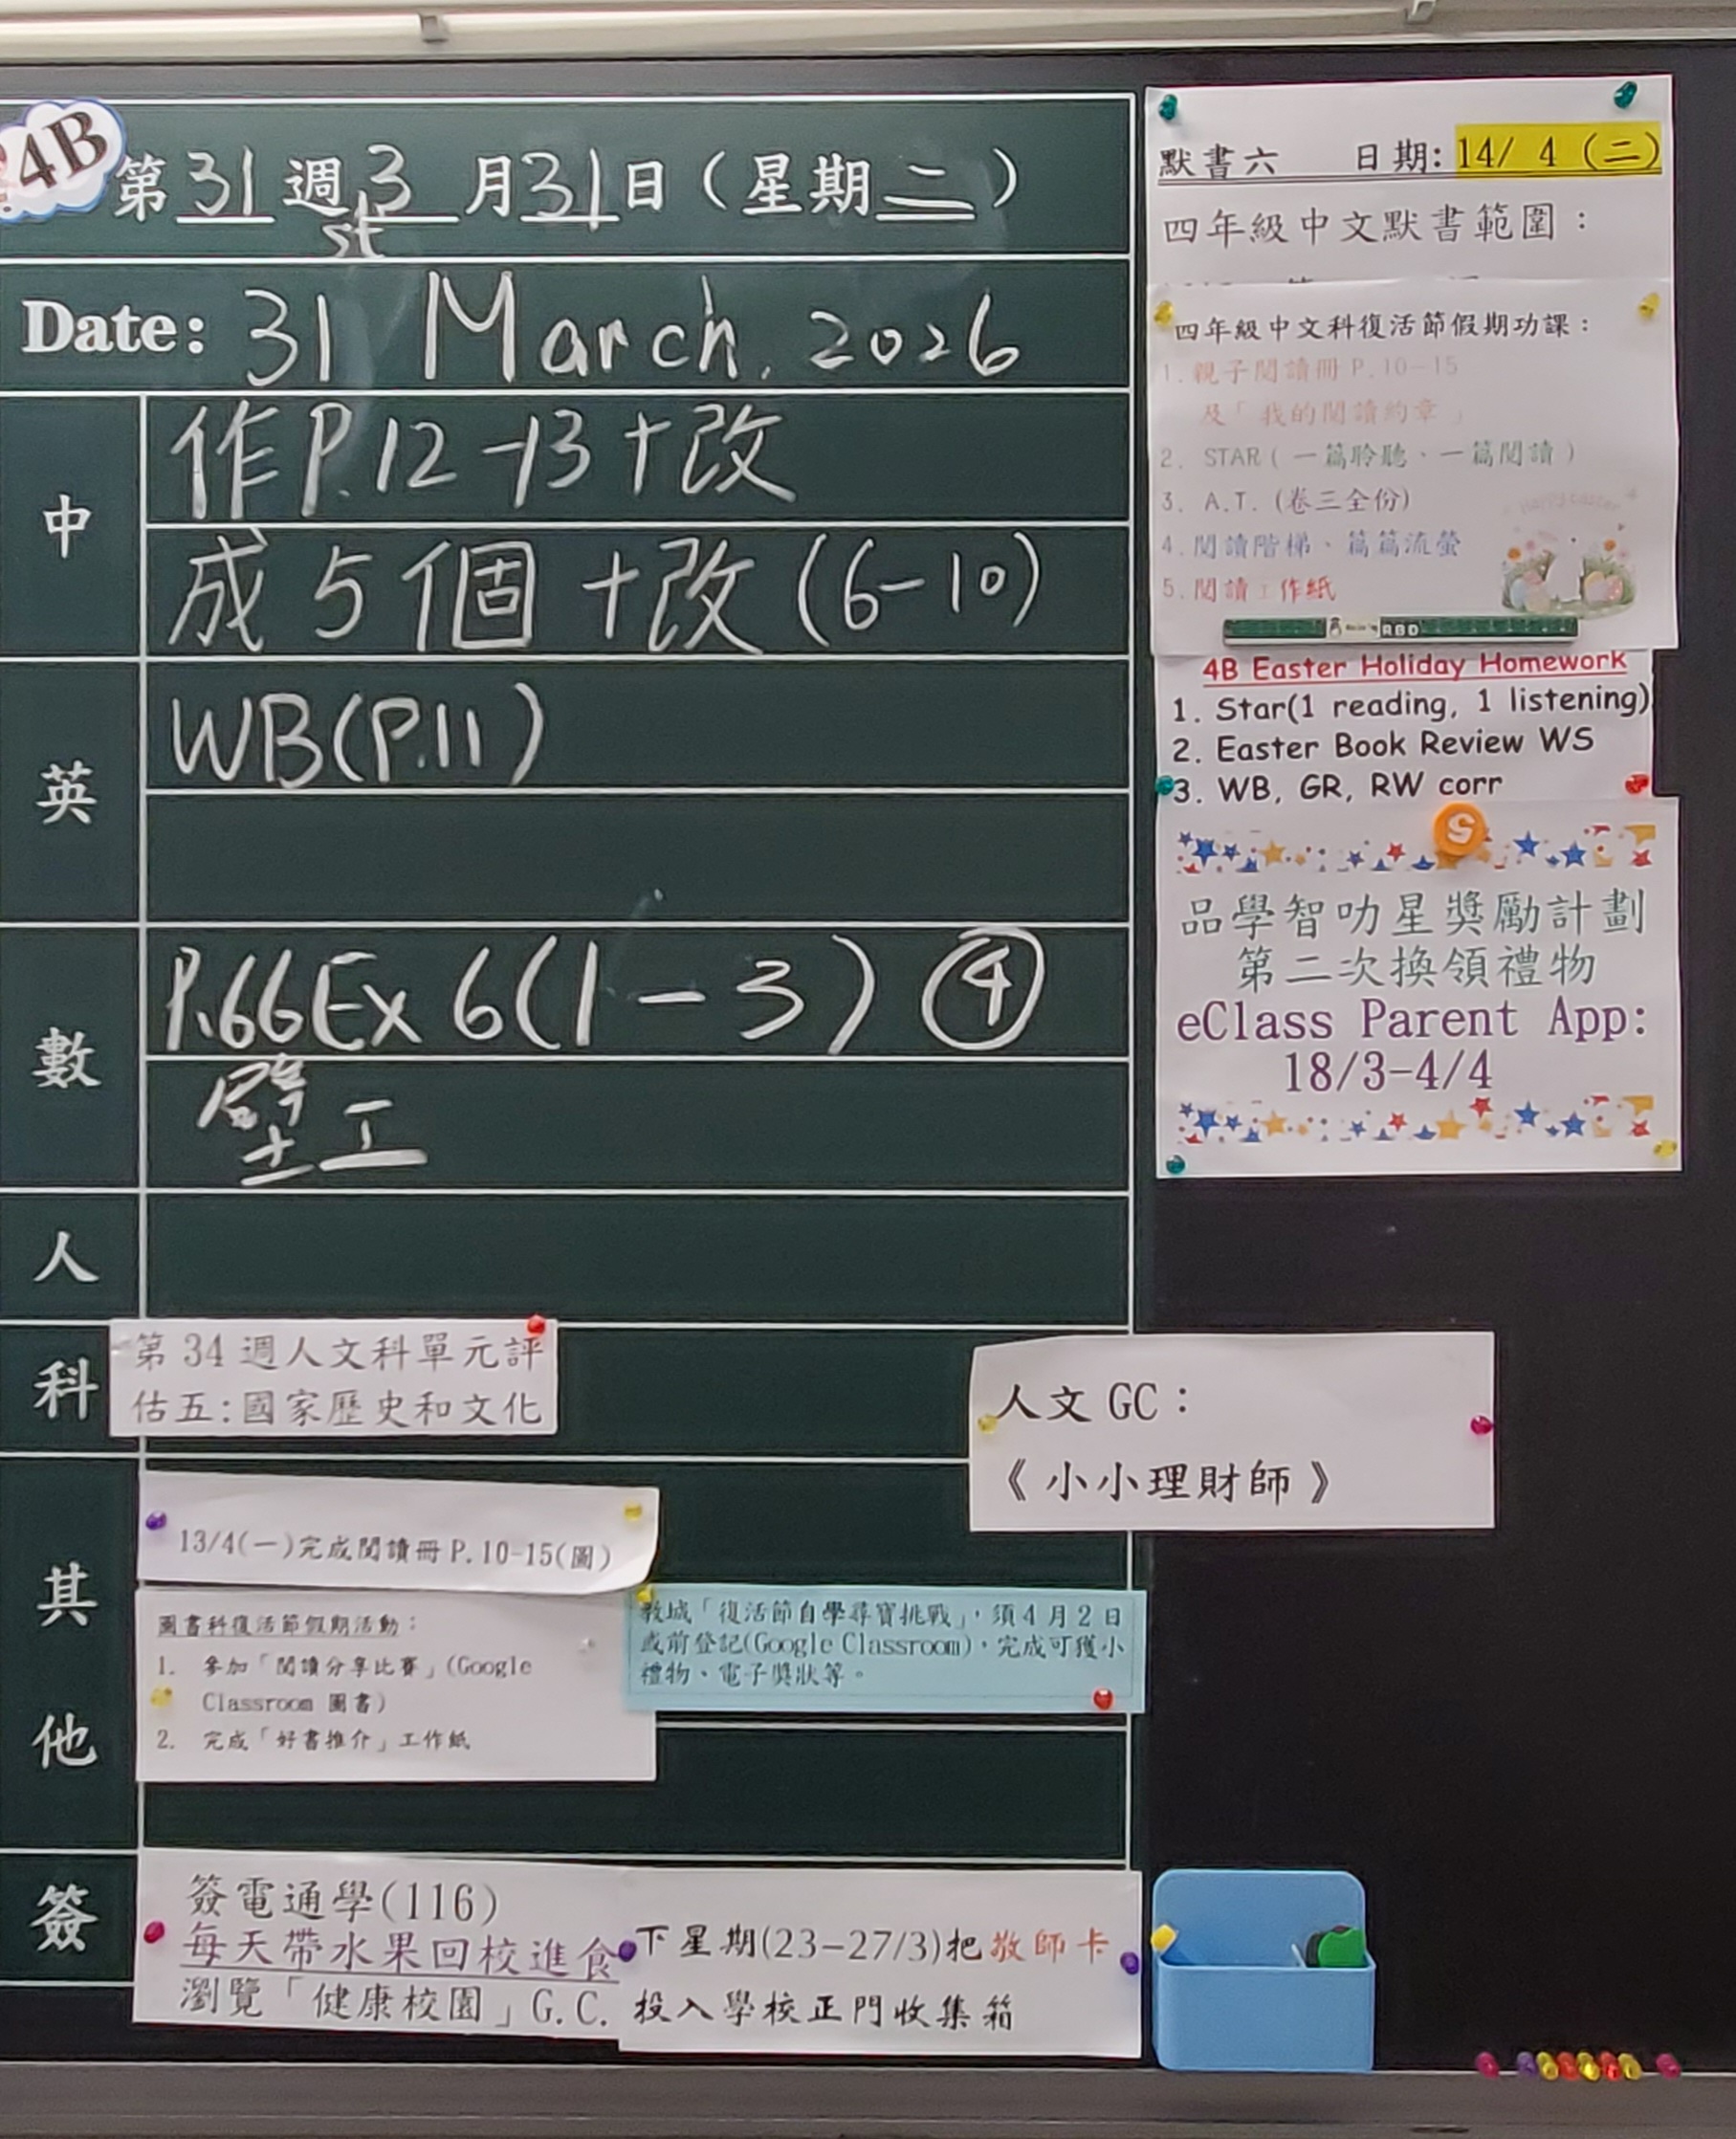 4B
第31週3月31日（星期二）
Date: 31st March, 2026
中
作P.12-13+改
成5個+改(6-10)
英
WB(P.11)
數
P.66Ex 6(1-3) ④
壁工
人
科
第 34 週人文科單元評
估五:國家歷史和文化
人文 GC：
《小小理財師》
其他
13/4(一)完成閱讀冊 P.10-15(圖)
圖書科復活節假期活動：
1. 參加「閱讀分享比賽」(Google
Classroom 圖書)
2. 完成「好書推介」工作紙
教城「復活節自學尋寶挑戰」，須 4 月 2 日
或前登記(Google Classroom)，完成可獲小
禮物、電子獎狀等。
簽
簽電通學(116)
每天帶水果回校進食
瀏覽「健康校園」G.C.
下星期(23-27/3)把敬師卡
投入學校正門收集箱
默書六 日期: 14/ 4（二）
四年級中文默書範圍：
四年級中文科復活節假期功課：
1. 親子閱讀冊 P.10-15
及「我的閱讀約章」
2. STAR（一篇聆聽、一篇閱讀）
3. A.T. (卷三全份)
4. 閱讀階梯、篇篇流螢
5. 閱讀工作紙
Happy Easter
4B Easter Holiday Homework
1. Star(1 reading, 1 listening)
2. Easter Book Review WS
3. WB, GR, RW corr
S
品學智叻星獎勵計劃
第二次換領禮物
eClass Parent App:
18/3-4/4